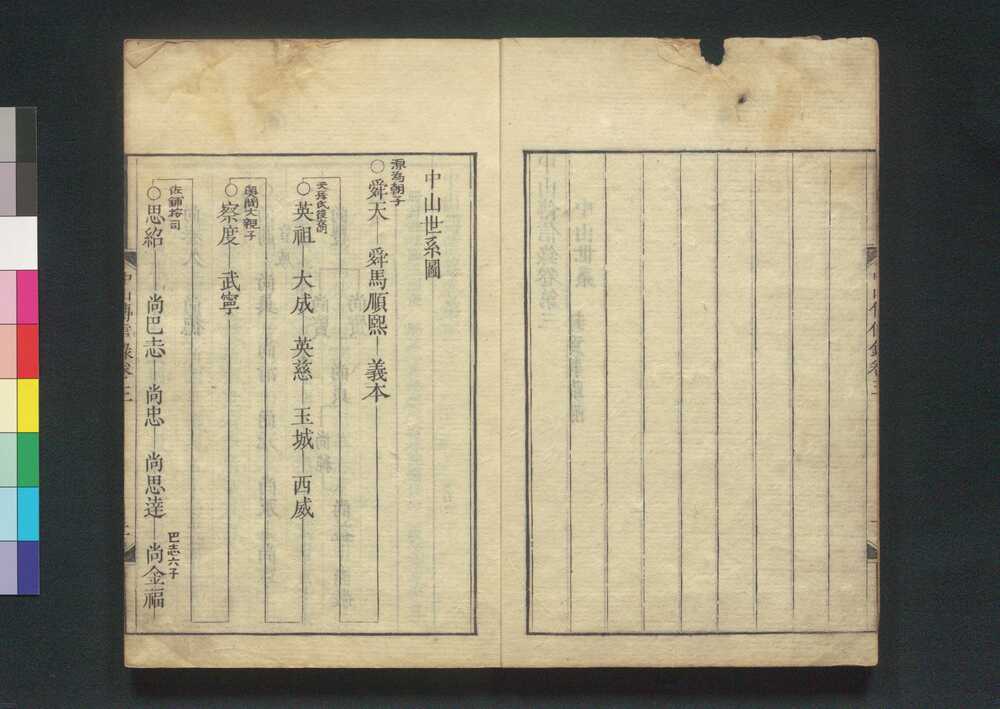 中山世系圖
源為朝子
舜天 舜馬順熙 義本
天孫氏後裔
英祖 大成 英慈 玉城 西威
奧間大親子
察度 武寧
佐鋪按司
思紹 尚巴志 尚忠 尚思達 尚金福
巴志六子
中山傳信錄卷三